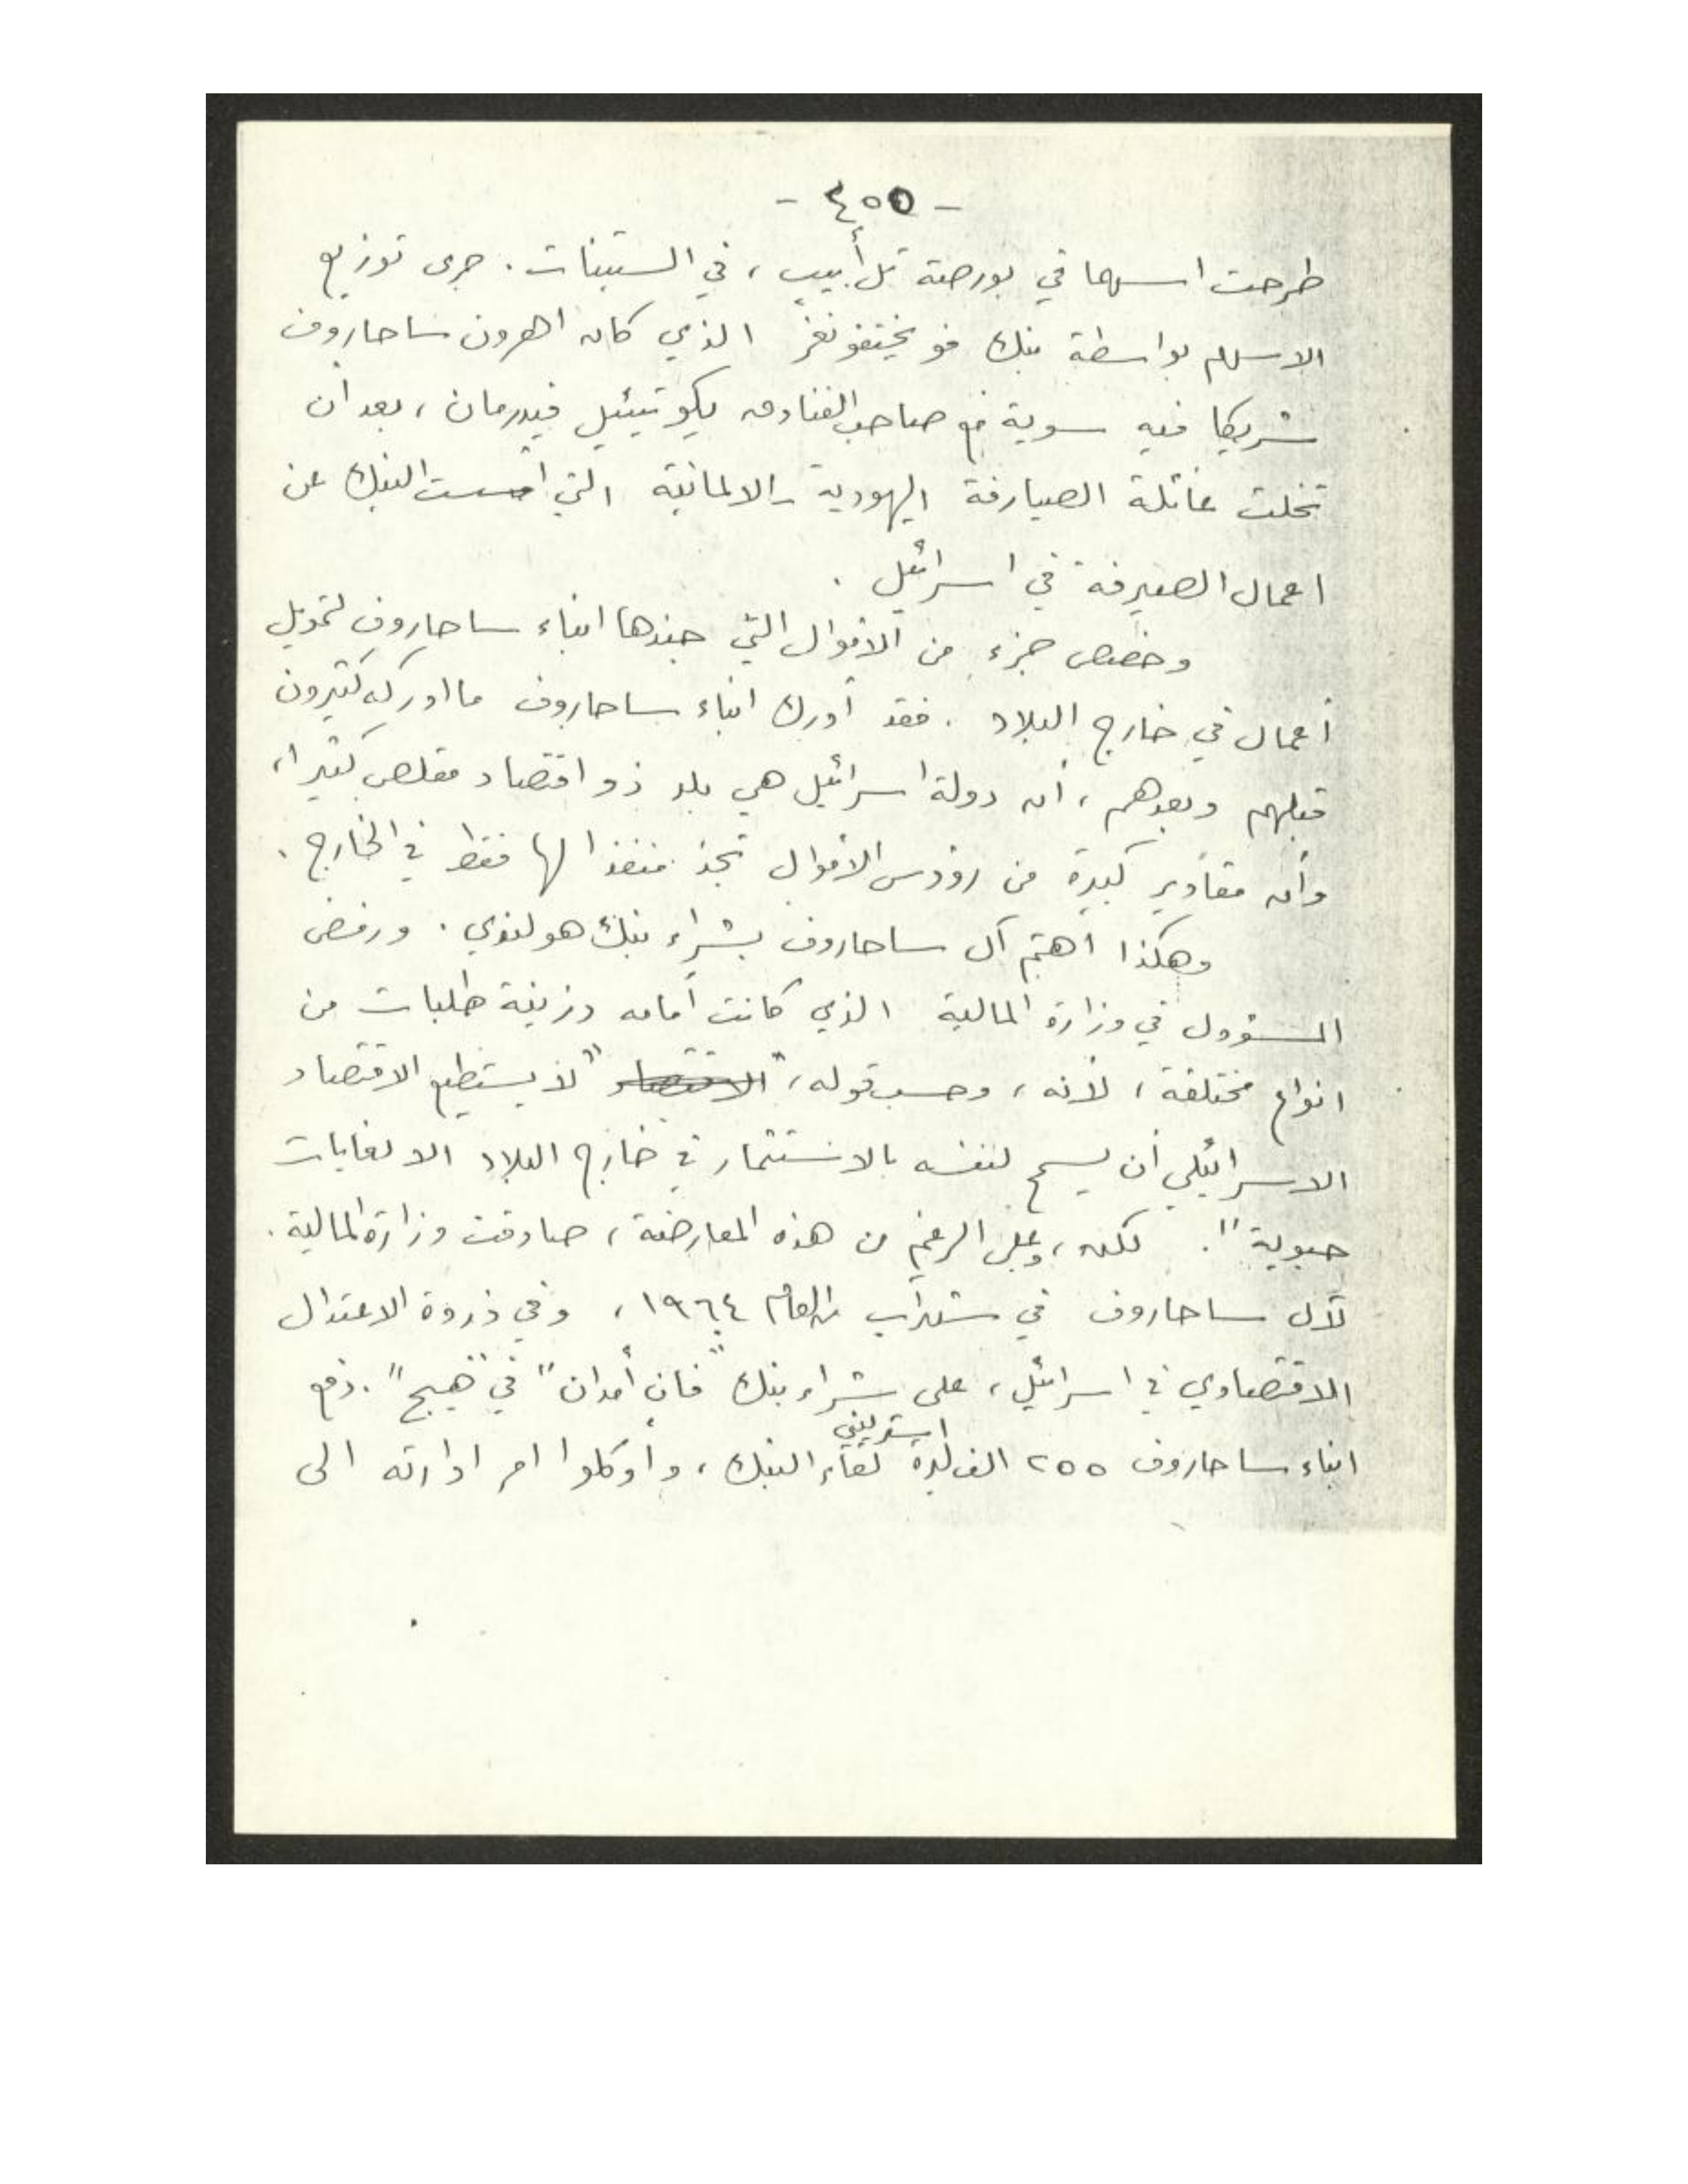 - ٤٥٥ -
طرحت اسهما في بورصة تل أبيب ، في الستينات . جرى توزيع
الاسهم بواسطة بنك فويختفونغر الذي كان اهرون ساحاروف
شريكا فيه سوية مع صاحب الفنادق يكوتيئيل فيدرمان ، بعد ان
تخلت عائلة الصيارفة اليهودية - الالمانية التي أسست البنك عن
اعمال الصيرفة في اسرائيل .
وخصص جزء من الأموال التي جندها ابناء ساحاروف لتمويل
أعمال في خارج البلاد . فقد أدرك ابناء ساحاروف ما ادركه كثيرون
قبلهم وبعدهم ، أن دولة اسرائيل هي بلد ذو اقتصاد مقلص كثيرا ،
وأن مقادير كبيرة من رؤوس الأموال تجد منفذا لها فقط في الخارج .
وهكذا اهتم آل ساحاروف بشراء بنك هولندي . ورفض
المسؤول في وزارة المالية الذي كانت أمامه دزينة طلبات من
انواع مختلفة ، لأنه ، وحسب قوله ، " لا يستطيع الاقتصاد
الاسرائيلي أن يسمح لنفسه بالاستثمار في خارج البلاد الا لغايات
حيوية " . لكن ، وعلى الرغم من هذه المعارضة ، صادقت وزارة المالية .
لآل ساحاروف في شهر آب العام ١٩٦٤ ، وفي ذروة الاعتدال
الاقتصادي في اسرائيل ، على شراء بنك " فان أمدان " في " هيج " . دفع
ابناء ساحاروف ٢٥٥ الف ليرة استرليني لقاء البنك ، وأوكلوا امر ادارته الى